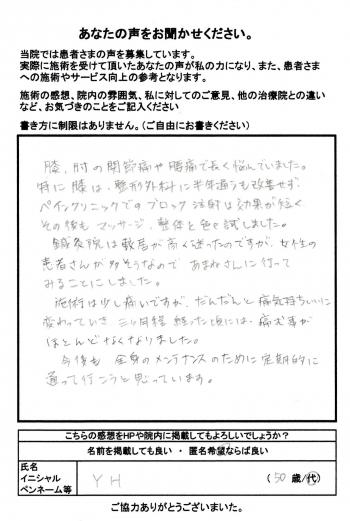 あなたの声をお聞かせください。
当院では患者さまの声を募集しています。
実際に施術を受けて頂いたあなたの声が私の力になり、また、患者さま
への施術やサービス向上の参考となります。
施術の感想、院内の雰囲気、私に対してのご意見、他の治療院との違い
など、お気づきのことをご記入ください
書き方に制限はありません。（ご自由にお書きください）
膝、肘の関節痛や腰痛で長く悩んでいました。
特に膝は、整形外科に半年通うも改善せず、
ペインクリニックでのブロック注射は効果が短く
その後もマッサージ、整体と色々試しました。
鍼灸院は敷居が高く迷ったのですが、女性の
患者さんが多そうなので あまねさんに行って
みることにしました。
施術は少し痛いですが、だんだんと痛気持ちいいに
変わっていき 三ヶ月程 経った頃には、痛む事が
ほとんどなくなりました。
今後も 全身のメンテナンスのために定期的に
通って行こうと思っています。
こちらの感想をHPや院内に掲載してもよろしいでしょうか？
名前を掲載しても良い ・ 匿名希望ならば良い
氏名
イニシャル
ペンネーム等
YH
（ 50 歳/代）
ご協力ありがとうございまいた。